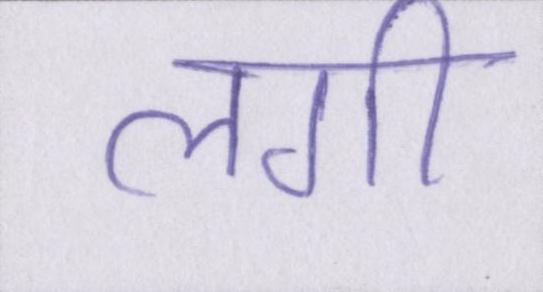 लगी